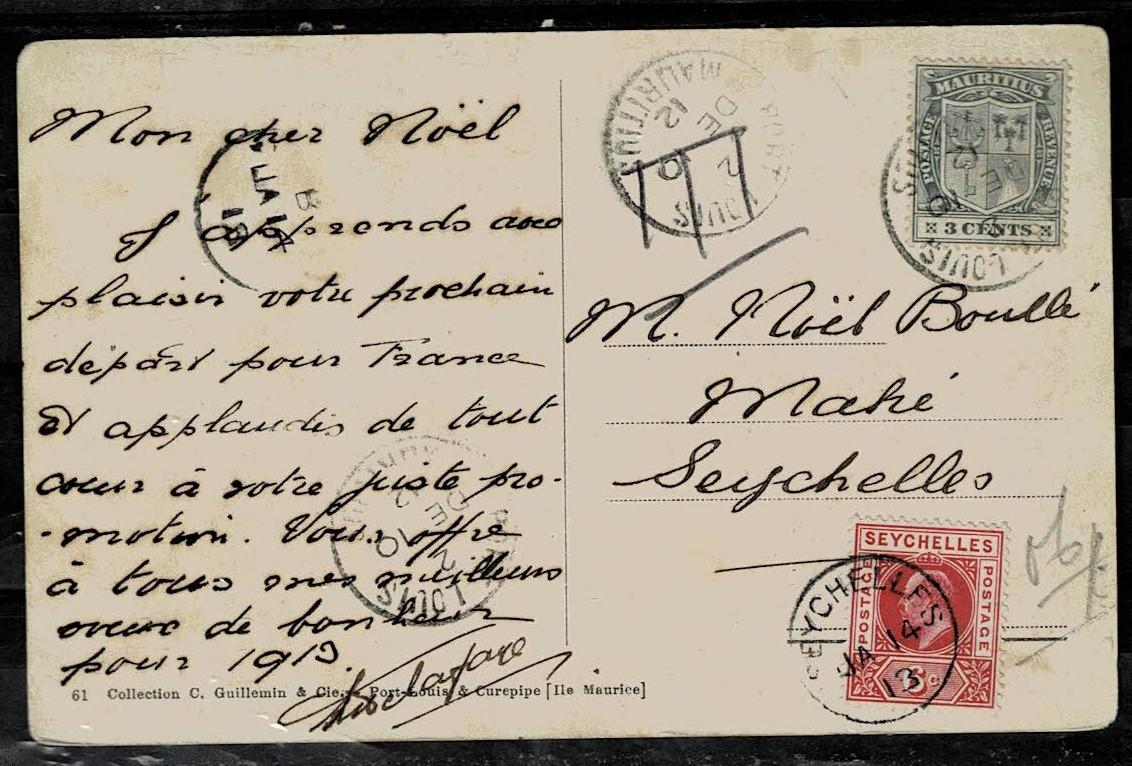 Mon cher Noël
J'apprends avec
plaisir votre prochain
départ pour France
Et applaudis de tout
cœur à votre juste pro-
-motion. Vous offre
à tous mes meilleurs
vœux de bonheur
pour 1913.
61 Collection C. Guillemin & Cie., Port-Louis & Curepipe [Ile Maurice]
PORT LOUIS
MAURITIUS
DE
12
T
MAURITIUS
POSTAGE
REVENUE
3 CENTS
LOUIS
M. Noël Boullé
Mahé
Seychelles
SEYCHELLES
POSTAGE
POSTAGE
6c
SEYCHELLES
JA 14
13
B
JA 14
13
LOUIS
DE